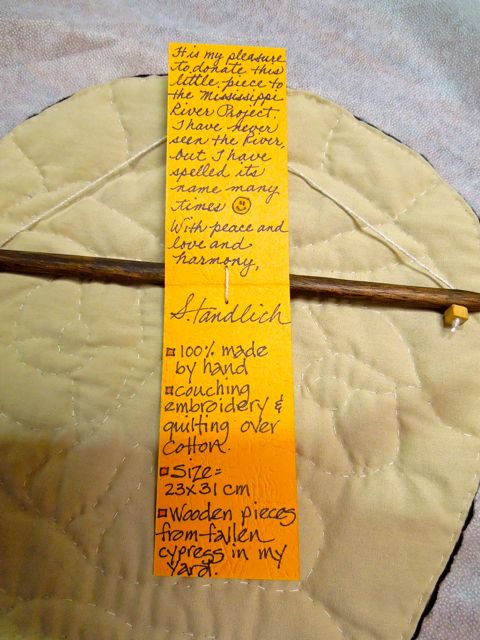 It is my pleasure
to donate this
little piece to
the Mississippi
River Project.
I have never
seen the River,
but I have
spelled its
name many
times ☺
With peace and
love and
harmony,
S. Tandlich
100% made
by hand
couching
embroidery &
quilting over
cotton.
Size=
23x31 cm
Wooden pieces
from fallen
cypress in my
yard.